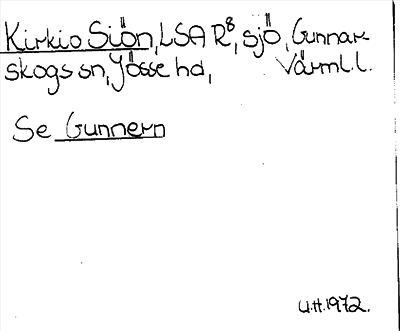 Kirkio Siön, LSA R8, sjö, Gunnar-
skogs sn, Jösse hd, Värml. l.
Se Gunnern
U.H. 1972.